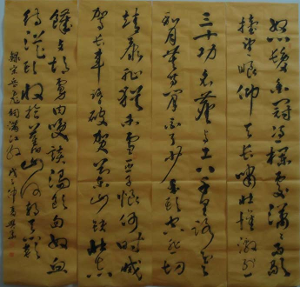 怒髮衝冠憑欄處瀟瀟雨歇
抬望眼仰天長嘯壯懷激烈
三十功名塵與土八千里路雲
和月莫等閒白了少年頭空悲切
靖康恥猶未雪臣子恨何時滅
駕長車踏破賀蘭山缺壯志
飢餐胡虜肉笑談渴飲匈奴血
待從頭收拾舊山河朝天闕
錄宋岳飛詞滿江紅